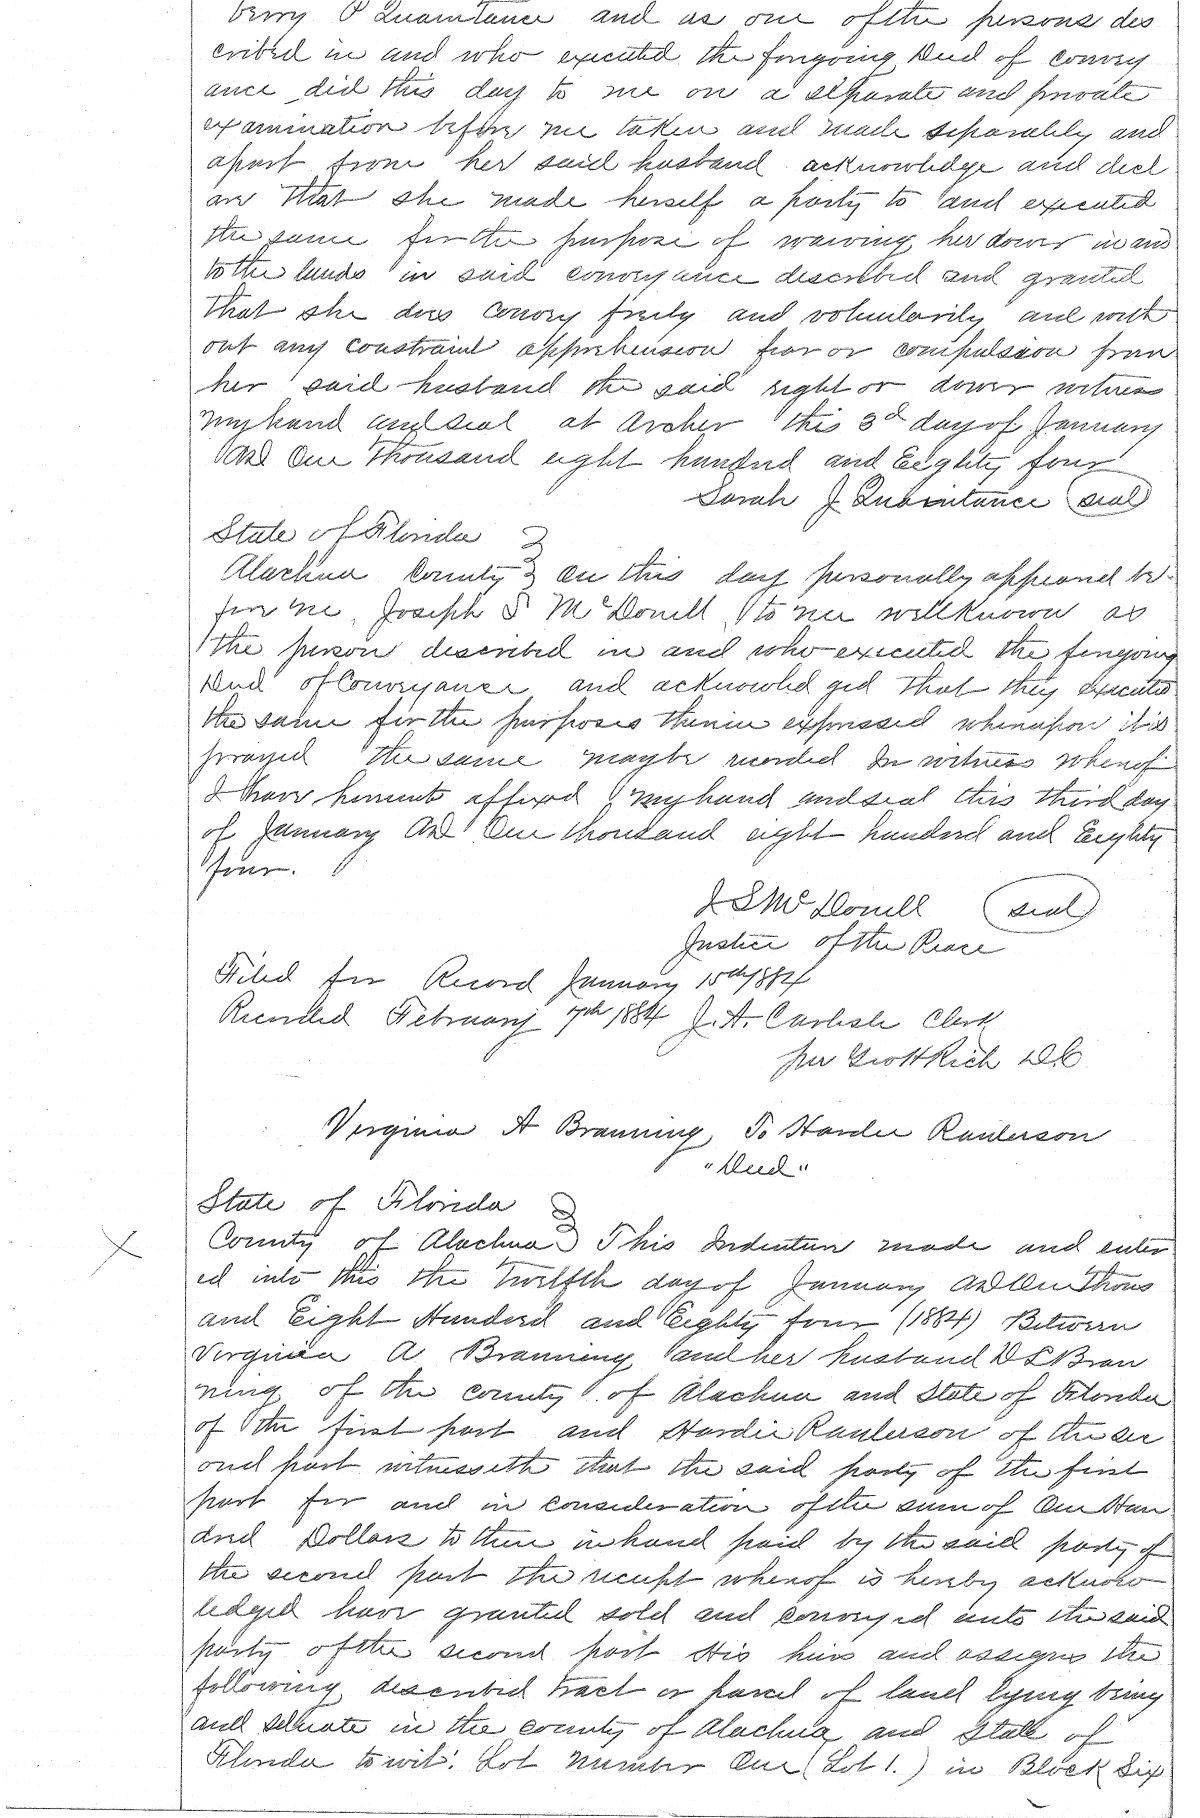 berry P Quaintance and as one of the persons des
cribed in and who executed the forgoing Deed of convey
ance did this day to me on a separate and private
examination before me taken and made separately and
apart from her said husband acknowledge and decl
are that she made herself a party to and executed
the same for the purpose of waiving her dower in and
to the lands in said conveyance described and granted
that she does convey freely and voluntarily and with
out any constraint apprehension fear or compulsion from
her said husband the said right or dower witness
my hand and seal at Archer this 3d day of January
AD One Thousand eight hundred and Eeghty four
Sarah J Quaintance seal
State of Florida
Alachua County On this day personally appeared be-
fore me, Joseph S McDonell, to me well known as
the person described in and who executed the forgoing
Deed of Conveyance and acknowledged that they executed
the same for the purposes therein expressed whereupon it is
prayed the same may be recorded In witness whereof
I have hereunto affixed my hand and seal this third day
of January AD One thousand eight hundred and Eeighty
four.
J S McDonell seal
Justice of the Peace
Filed for Record January 15th 1884
Recorded February 7th 1884 J. A. Carlisle Clerk
per Geo H Rich D.C
Virginia A Branning To Hardee Raulerson
"Deed"
State of Florida
County of Alachua This Indenture made and enter
ed into this the Twelfth day of January AD One Thous
and Eight Hundred and Eeighty four (1884) Between
Virginia A Branning and her husband D L Bran
ning of the county of Alachua and State of Florida
of the first part and Hardie Raulerson of the sec
ond part witnesseth that the said party of the first
part for and in consideration of the sum of One Hun
dred Dollars to them in hand paid by the said party of
the second part the receipt whereof is hereby acknow
ledged have granted sold and conveyed unto the said
party of the second part His heirs and assigns the
following described tract or parcel of land lying being
and situate in the county of Alachua and State of
Florida to wit: Lot Number One (Lot 1.) in Block Six